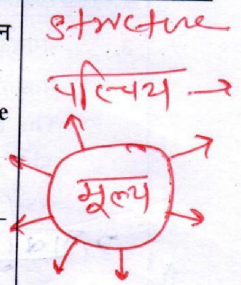 न structure
परिचय →
e
मूल्य